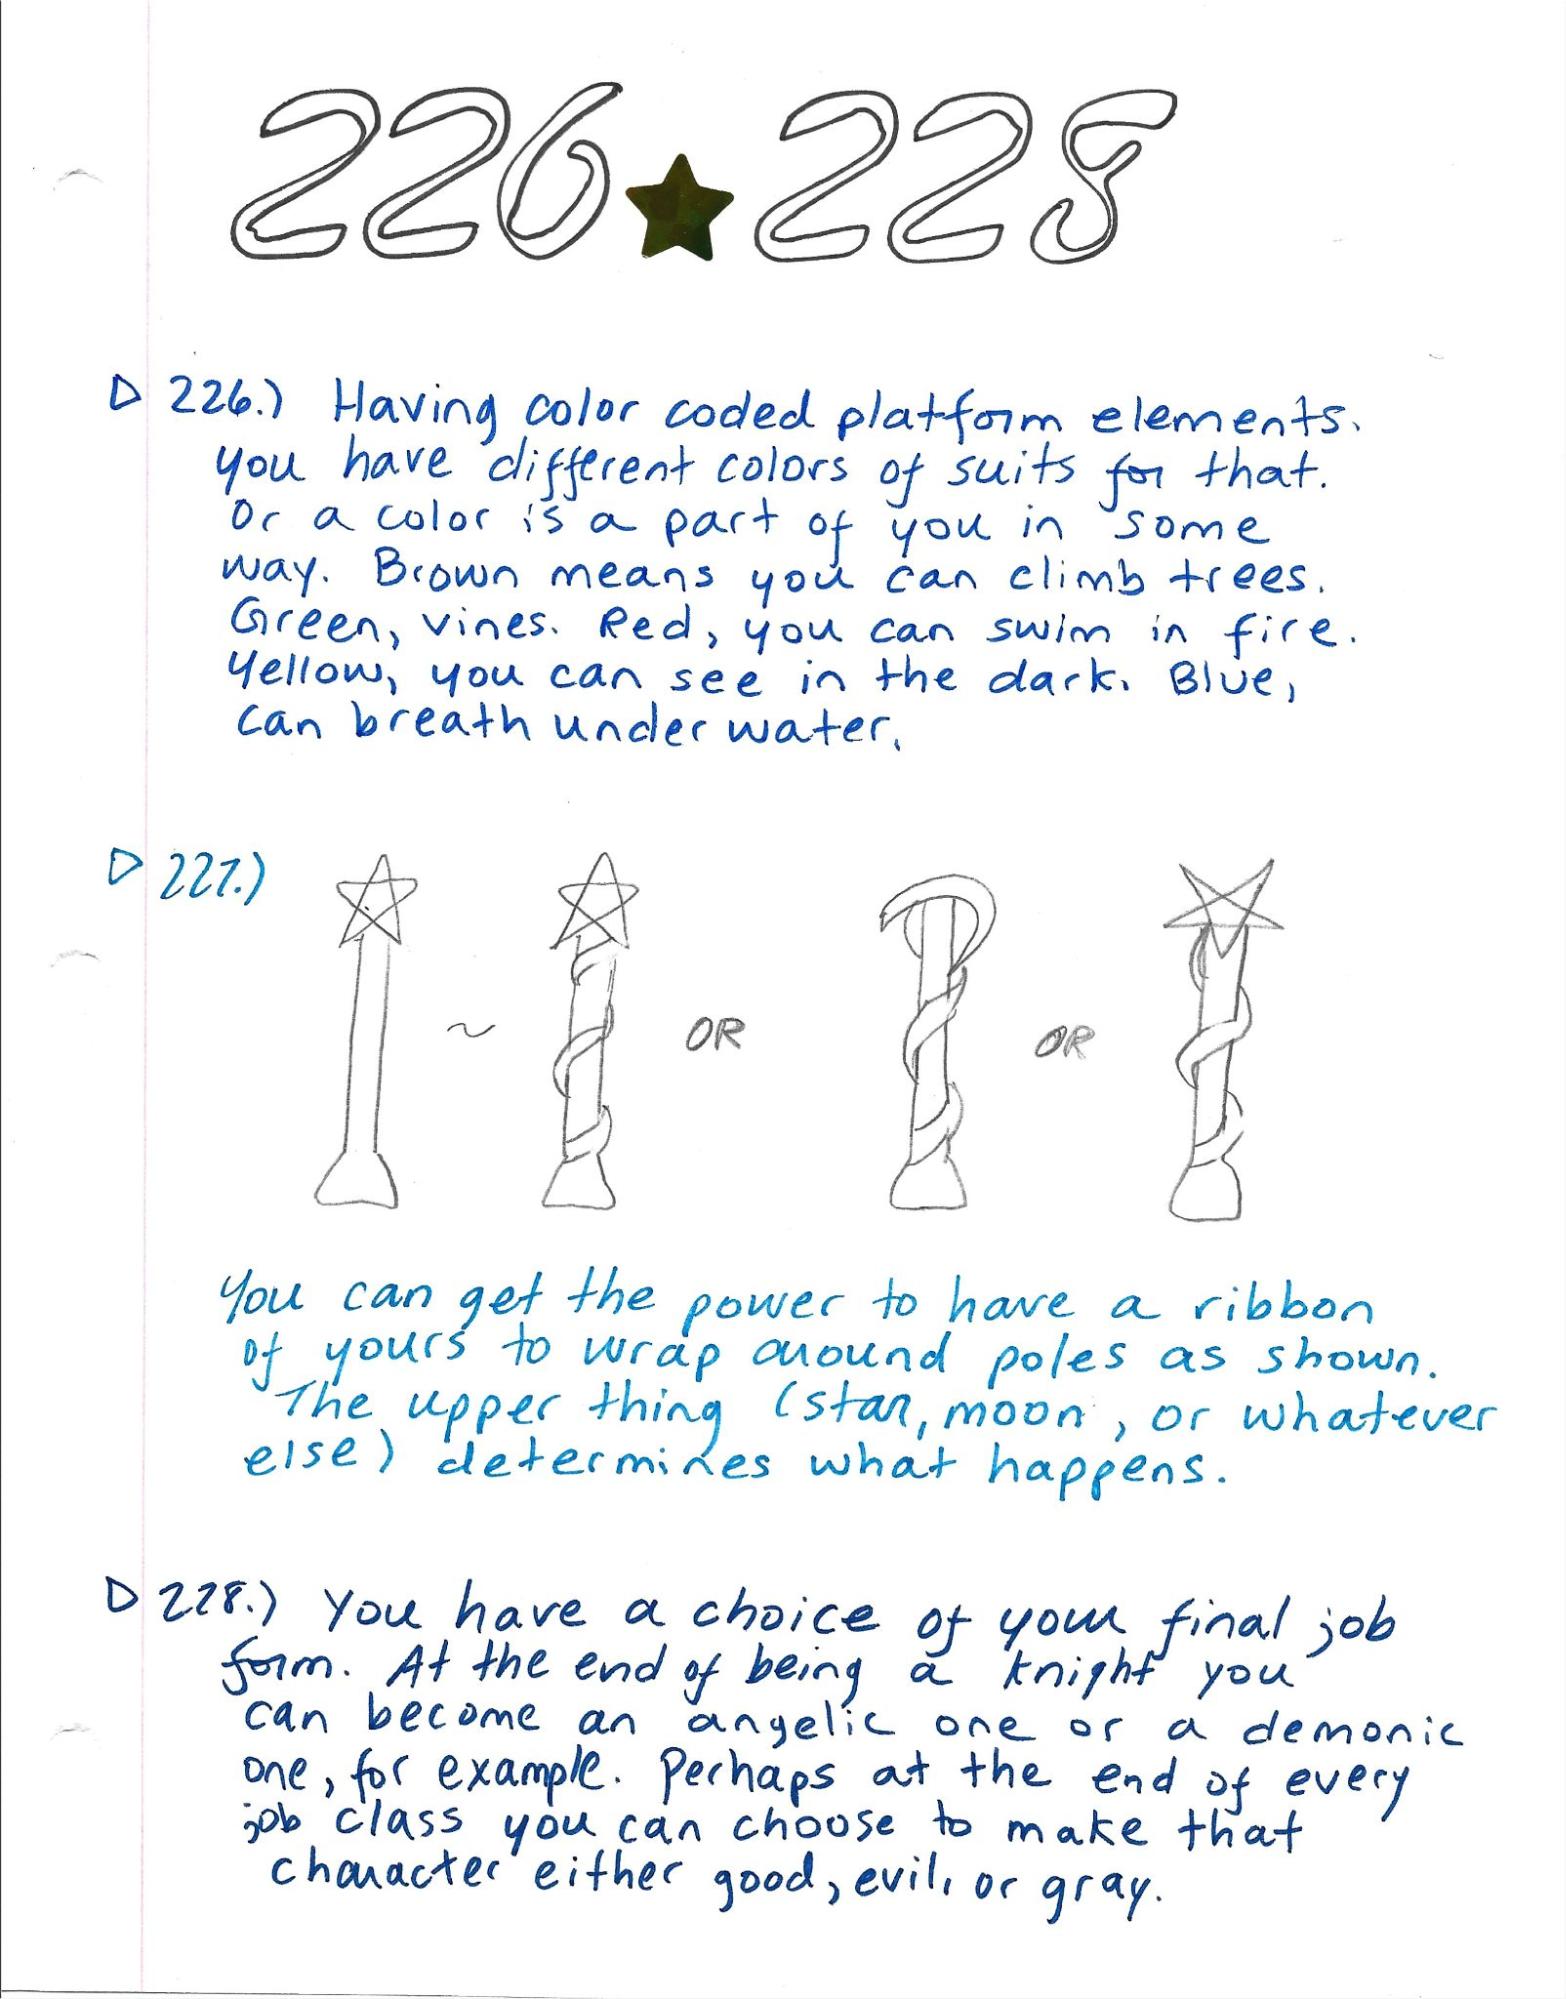 226 ★ 228
▷ 226.) Having color coded platform elements.
you have different colors of suits for that.
Or a color is a part of you in some
way. Brown means you can climb trees.
Green, vines. Red, you can swim in fire.
Yellow, you can see in the dark. Blue,
can breath under water.
▷ 227.)
~ OR OR
You can get the power to have a ribbon
of yours to wrap around poles as shown.
The upper thing (star, moon, or whatever
else) determines what happens.
▷ 228.) You have a choice of your final job
form. At the end of being a knight you
can become an angelic one or a demonic
one, for example. Perhaps at the end of every
job class you can choose to make that
character either good, evil, or gray.